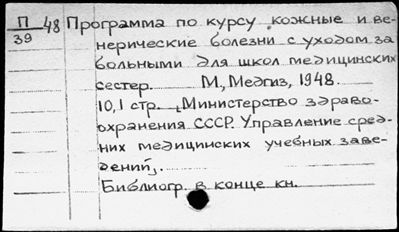 П 48 Программа по курсу кожные и ве-
39 нерические болезни с уходом за
больными для школ медицинских
сестер. М., Медгиз, 1948.
10,1 стр. (Министерство здраво-
охранения СССР. Управление сред-
них медицинских учебных заве-
дений).
Библиогр. в конце кн.